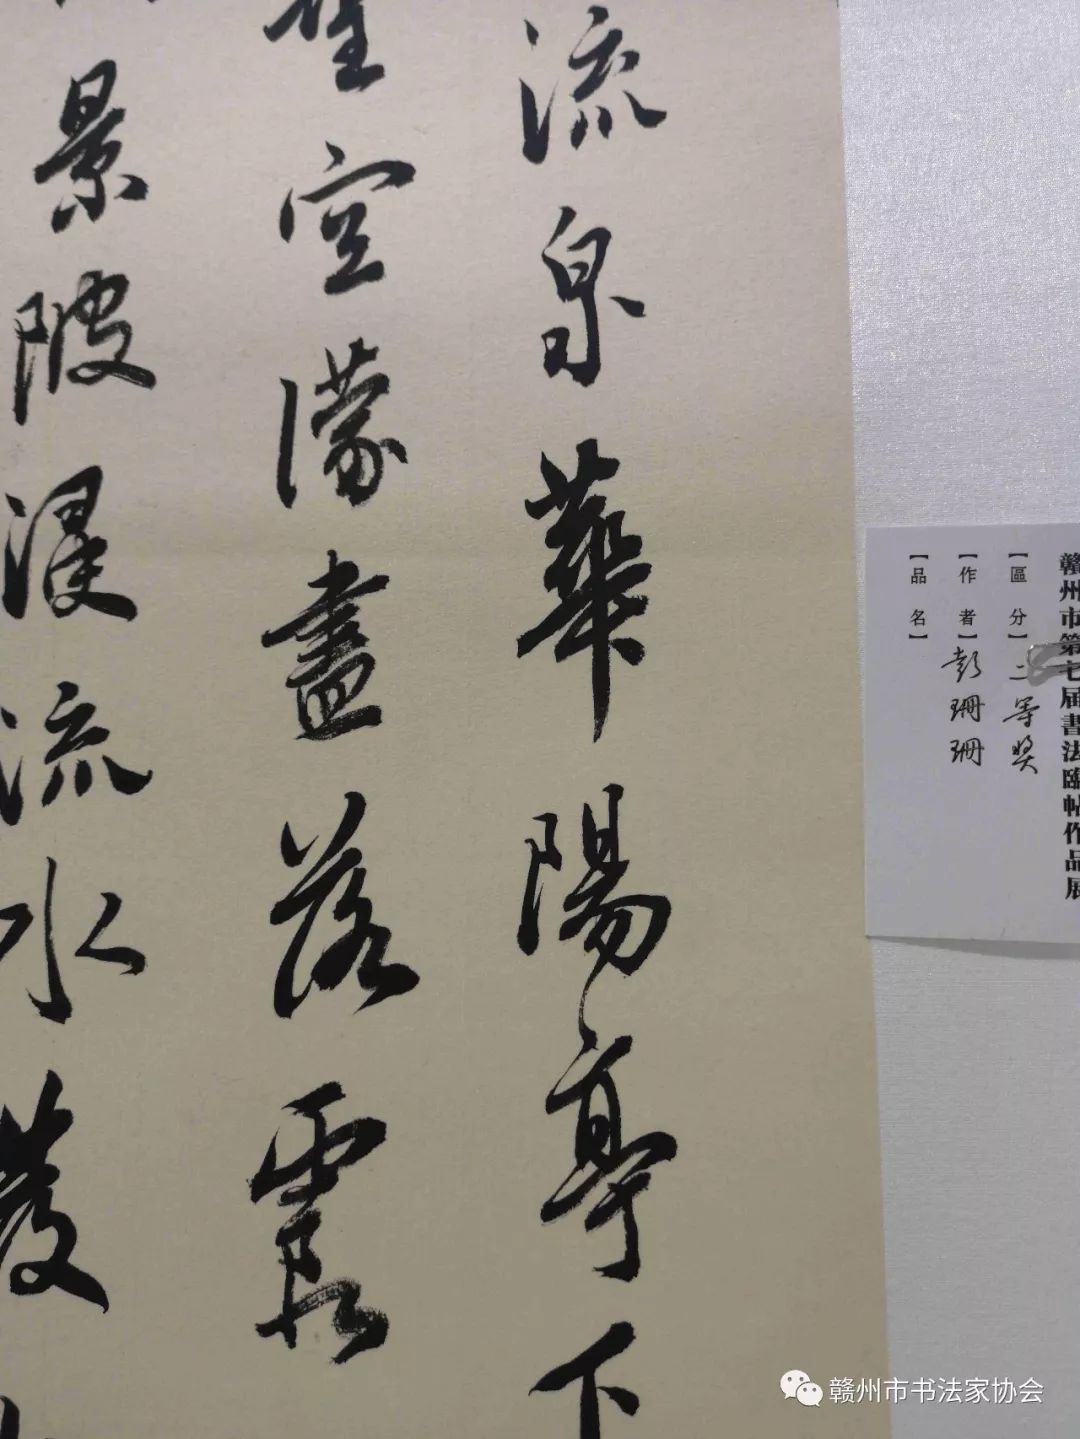 贛州市第七届書法臨帖作品展
【區 分】二等奖
【作 者】彭珊珊
【品 名】
流泉華陽亭下
望空濛盡落霞
景陂漫流水發
赣州市书法家协会